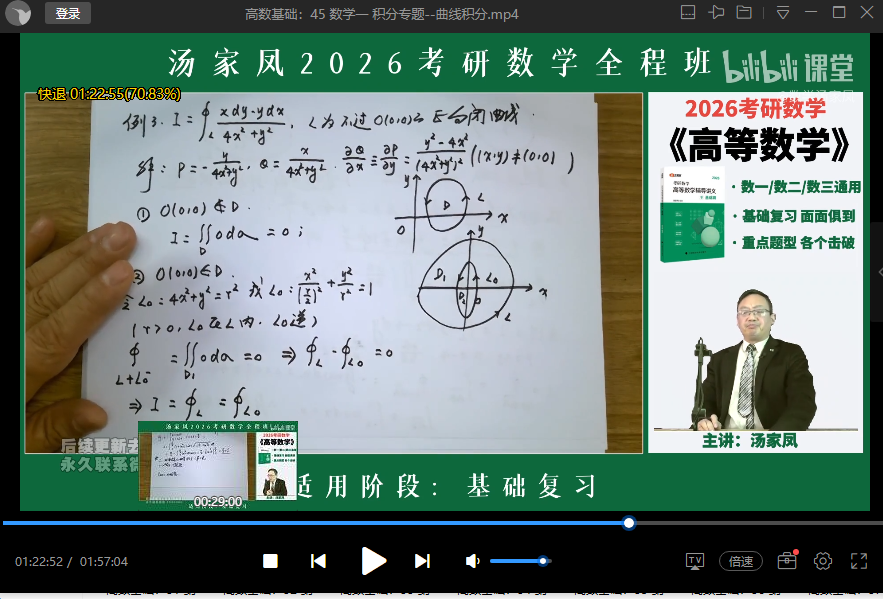 登录
高数基础：45 数学一 积分专题--曲线积分.mp4
汤家凤2026考研数学全程班
bilibili课堂
快退 01:22:55(70.83%)
例3. I = ∮_L (xdy-ydx)/(4x²+y²), L为不过O(0,0)的正向闭曲线.
解: P = -y/(4x²+y²), Q = x/(4x²+y²). ∂Q/∂x ≡ ∂P/∂y = (y²-4x²)/(4x²+y²)² ((x,y)≠(0,0))
① O(0,0)∉D.
I = ∬_D 0dσ = 0;
② O(0,0)∈D.
令L₀: 4x²+y²=r² 或L₀: x²/(r/2)² + y²/r² = 1
(r>0, L₀在L内. L₀逆)
∮_{L+L₀⁻} = ∬_{D₁} 0dσ = 0 ⇒ ∮_L - ∮_{L₀} = 0
⇒ I = ∮_L = ∮_{L₀}
y
D
L
O
x
y
D₁
L₀
D₂
x
L
2026考研数学
《高等数学》
·数一/数二/数三通用
·基础复习 面面俱到
·重点题型 各个击破
主讲：汤家凤
后续更新去
永久联系微
汤家凤2026考研数学全程班
2026考研数学
《高等数学》
00:29:00
适用阶段：基础复习
01:22:52 / 01:57:04
TV
倍速